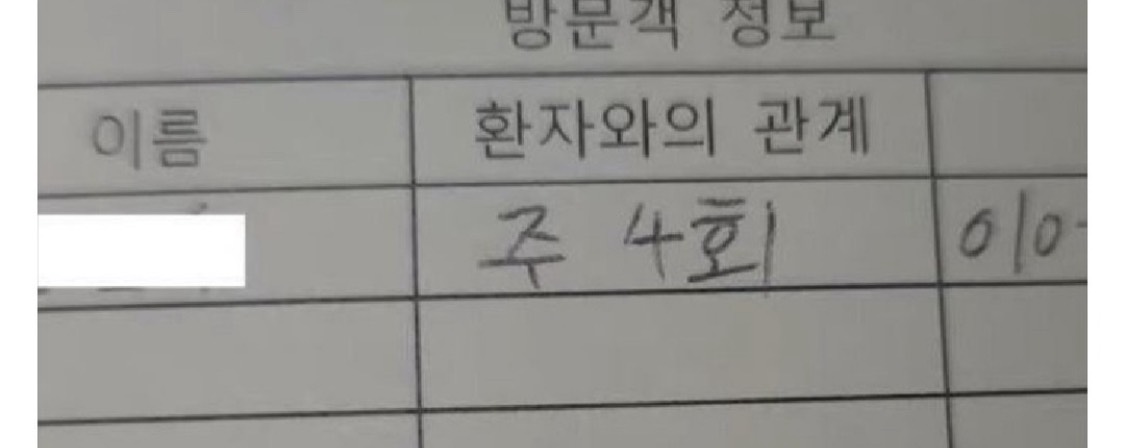 방문객 정보
이름 환자와의 관계
주 4회 010-